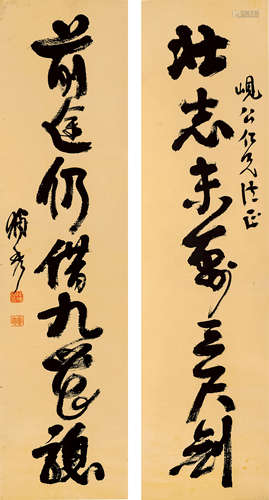 峴公仁兄法正
壯志未三尺劍
前途仍借九
獨秀